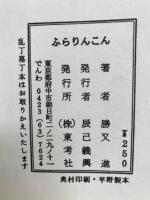 ふらりんこん
著者 勝又進
発行者 辰己義興
発行所 (株)東考社
東京都府中市朝日町二ノ二九ノ十一
でんわ 0423(63)7624
乱丁落丁本はお取りかえいたします
¥250
奥村印刷・平野製本